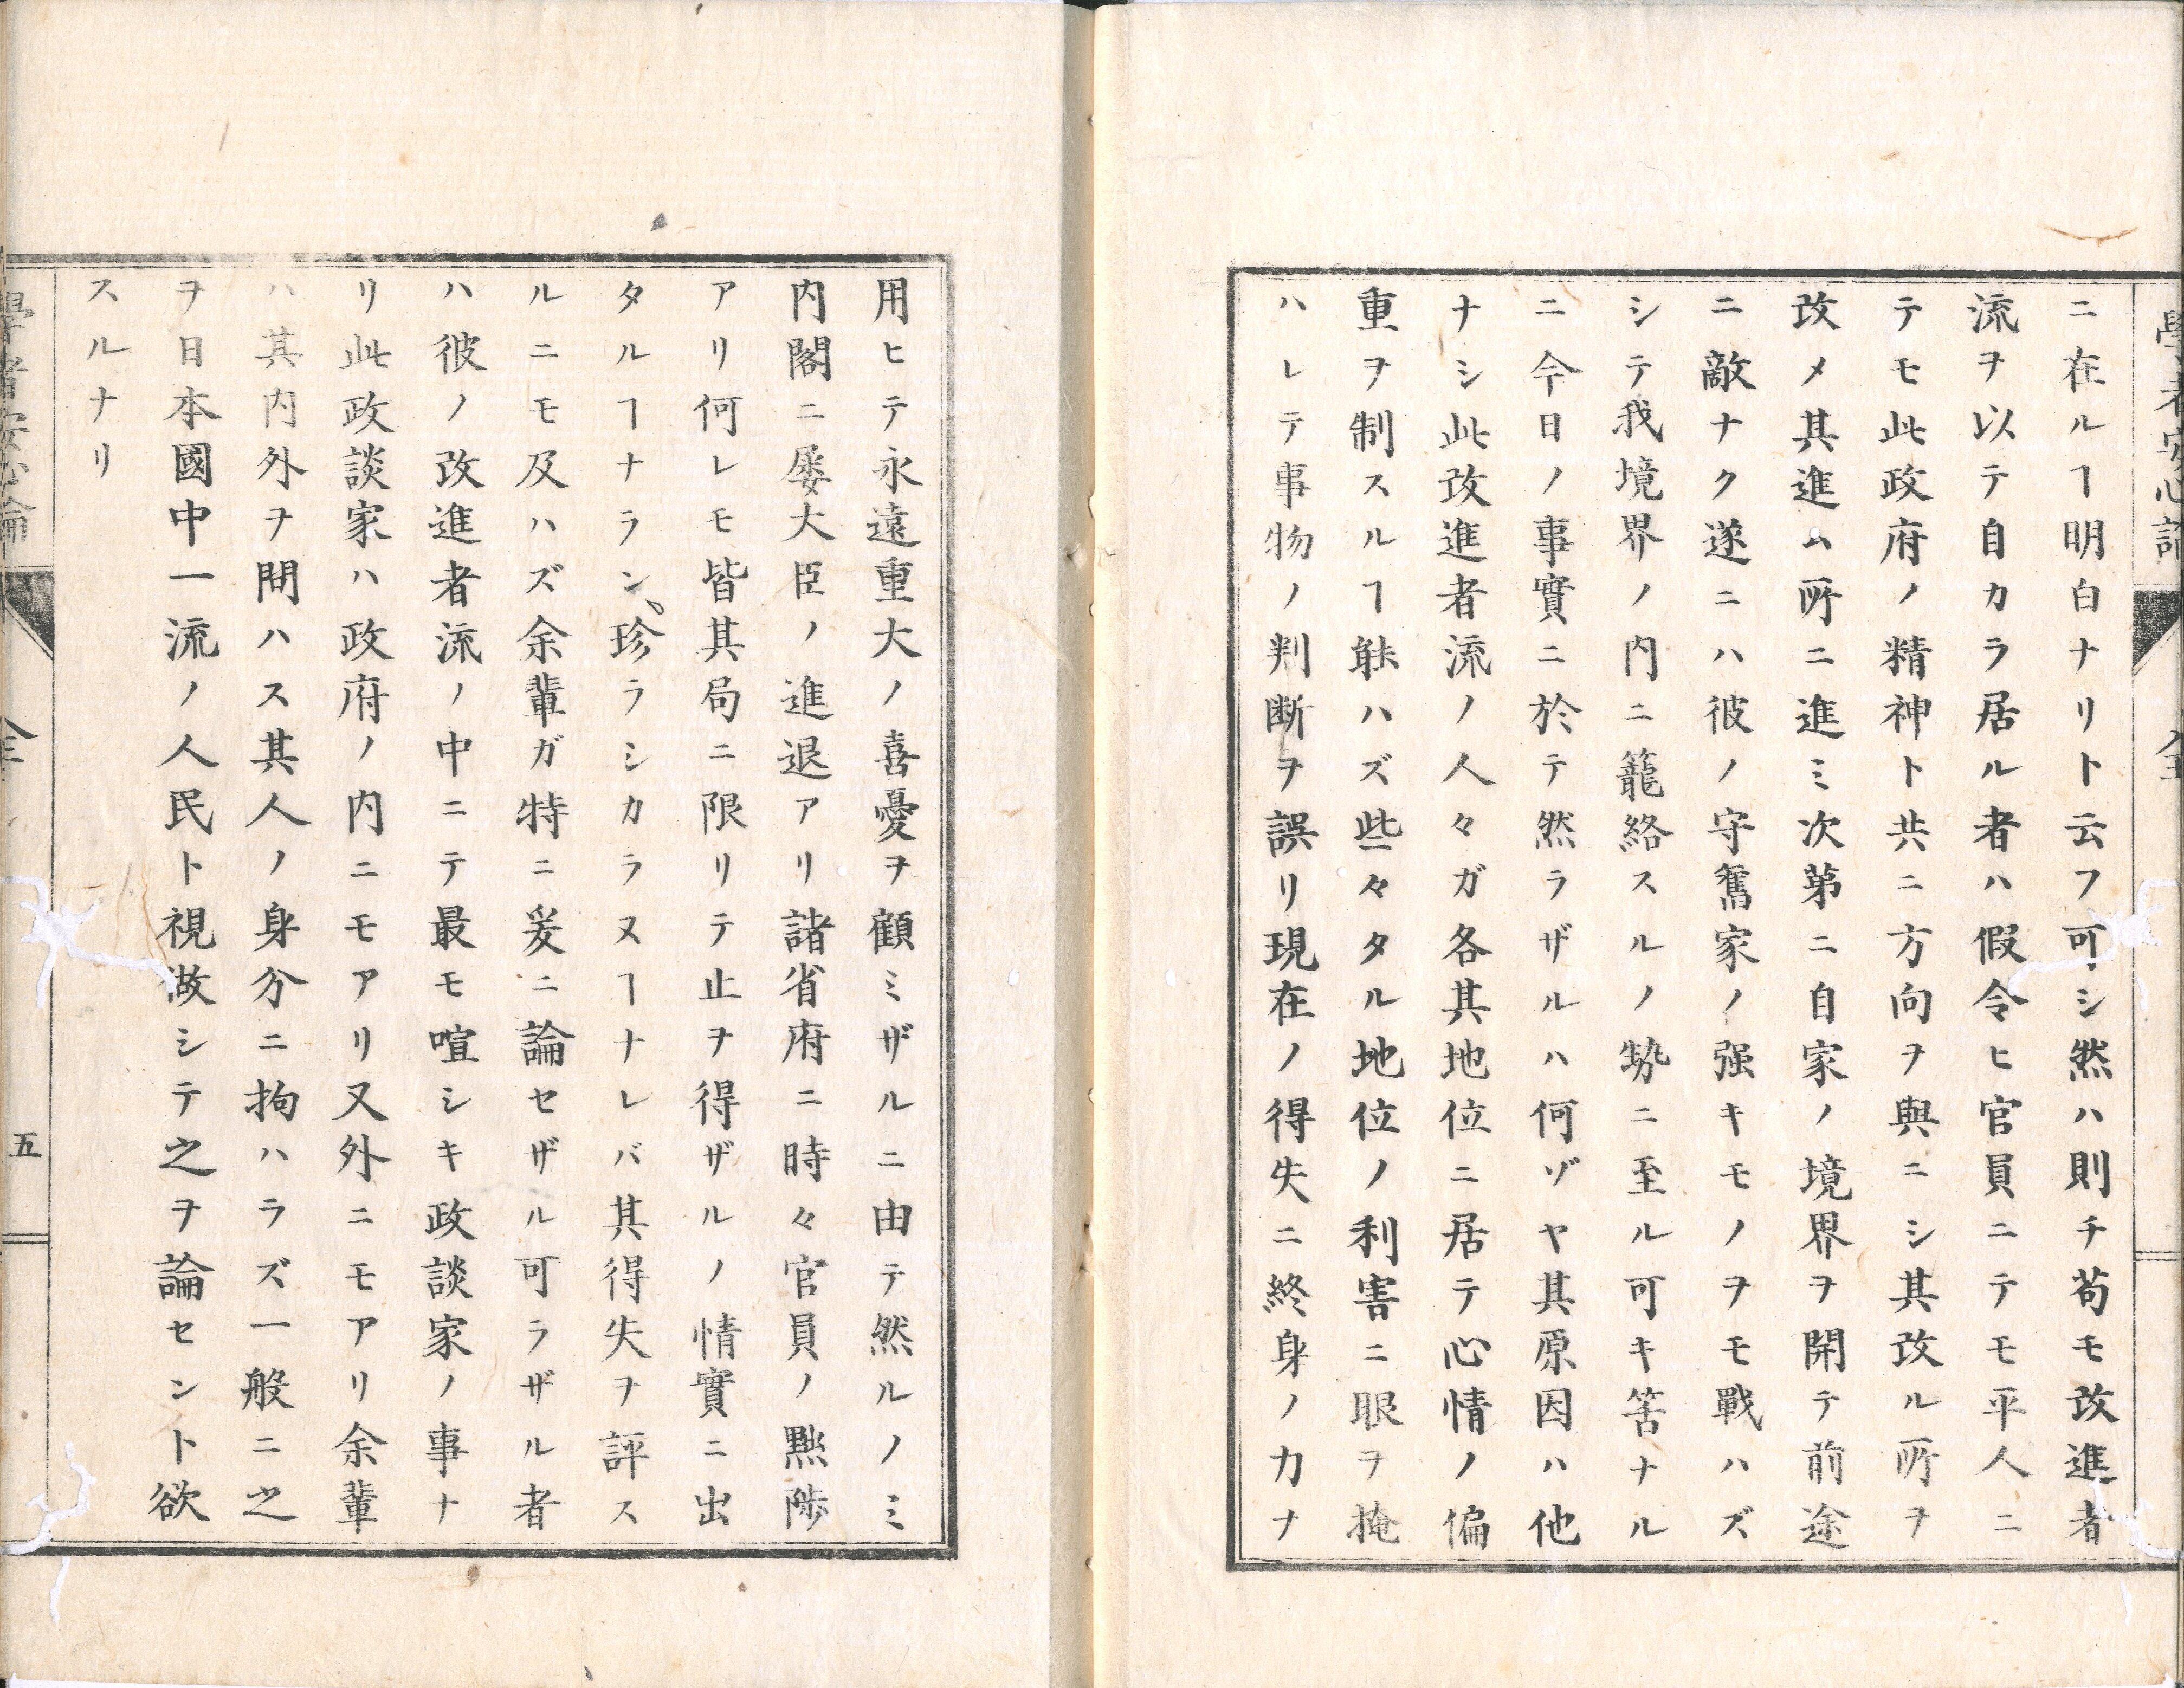 學者安心論
全
ニ在ルヿ明白ナリト云フ可シ然ハ則チ苟モ改進者
流ヲ以テ自カラ居ル者ハ假令ヒ官員ニテモ平人ニ
テモ此政府ノ精神ト共ニ方向ヲ與ニシ其改ル所ヲ
改メ其進ム所ニ進ミ次第ニ自家ノ境界ヲ開テ前途
ニ敵ナク遂ニハ彼ノ守奮家ノ强キモノヲモ戰ハズ
シテ我境界ノ内ニ籠絡スルノ勢ニ至ル可キ筈ナル
ニ今日ノ事實ニ於テ然ラザルハ何ゾヤ其原因ハ他
ナシ此改進者流ノ人々ガ各其地位ニ居テ心情ノ偏
重ヲ制スルヿ能ハズ些々タル地位ノ利害ニ眼ヲ掩
ハレテ事物ノ判断ヲ誤リ現在ノ得失ニ終身ノ力ナ
用ヒテ永遠重大ノ喜憂ヲ顧ミザルニ由テ然ルノミ
内閣ニ屡大臣ノ進退アリ諸省府ニ時々官員ノ黜陟
アリ何レモ皆其局ニ限リテ止ヲ得ザルノ情實ニ出
タルヿナラン珍ラシカラヌヿナレバ其得失ヲ評ス
ルニモ及ハズ余輩ガ特ニ爰ニ論セザル可ラザル者
ハ彼ノ改進者流ノ中ニテ最モ喧シキ政談家ノ事ナ
リ此政談家ハ政府ノ内ニモアリ又外ニモアリ余輩
ハ其内外ヲ問ハス其人ノ身分ニ拘ハラズ一般ニ之
ヲ日本國中一流ノ人民ト視做シテ之ヲ論セント欲
スルナリ
學者安心論
全
五